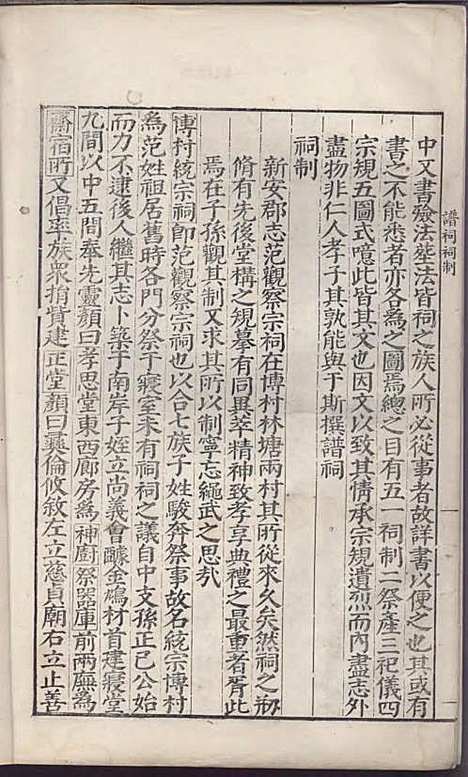 譜祠祠制
中又書瘞法塋法皆祠之族人所必從事者故詳書以便之也其或有
書之不能悉者亦各為之圖焉總之目有五一祠制二祭產三祀儀四
宗規五圖式噫此皆其文也因文以致其情承宗規遺烈而內盡志外
盡物非仁人孝子其孰能與于斯撰譜祠
祠制
新安郡志范觀察宗祠在博村林塘兩村其所從來久矣然祠之刱
脩有先後堂構之規摹有同異萃精神致孝享典禮之最重者胥此
焉在子孫觀其制又求其所以制寧忘繩武之思乎
博村統宗祠即范觀察宗祠也以合七族子姓駿奔祭事故名統宗博村
為范姓祖居舊時各門分祭于寢室未有祠祠之議自中支孫正巳公始
而力不逮後人繼其志卜築于南岸子姪立尚義會醵金鳩材首建寢堂
九間以中五間奉先靈顏曰孝思堂東西廊房為神廚祭器庫前兩廡為
齋宿所又倡率族眾捐貲建正堂顏曰彝倫攸敘左立慈貞廟右立止善